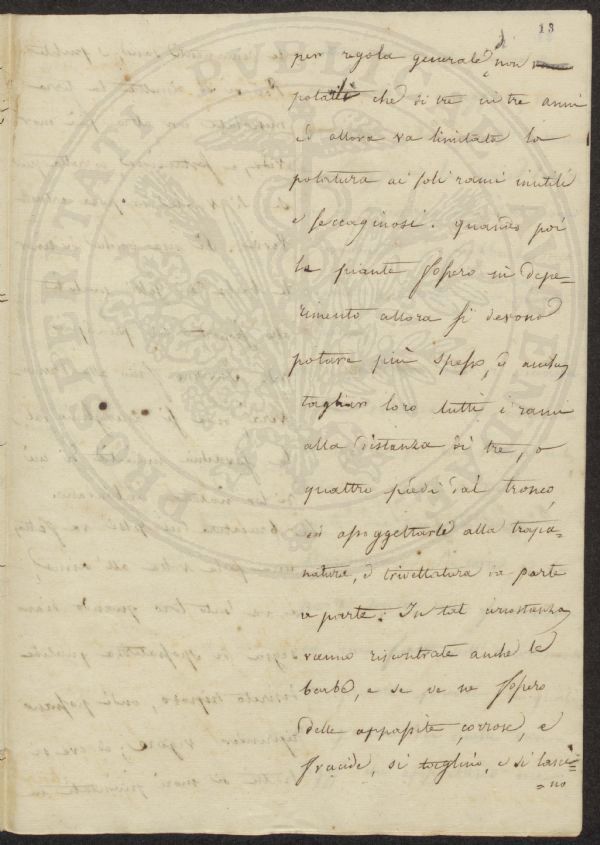 13
per regola generale, non
potarli che di tre in tre anni
ed allora va limitata la
potatura ai soli rami inutili
e seccaginosi. quando poi
le piante fossero in depe=
rimento allora si devono
potare più spesso, e
tagliar loro tutti i rami
alla distanza di tre, o
quattro piedi dal tronco
ed assoggettarle alla trapa=
natura, e trivellatura da parte
a parte. In tal circostanza
vanno riscontrate anche le
barbe, e se ve ne fossero
delle appassite, corrose, e
fracide, si taglino, e si lasci=
=no
PROSPERITATI PUBLICAE AUGENDAE